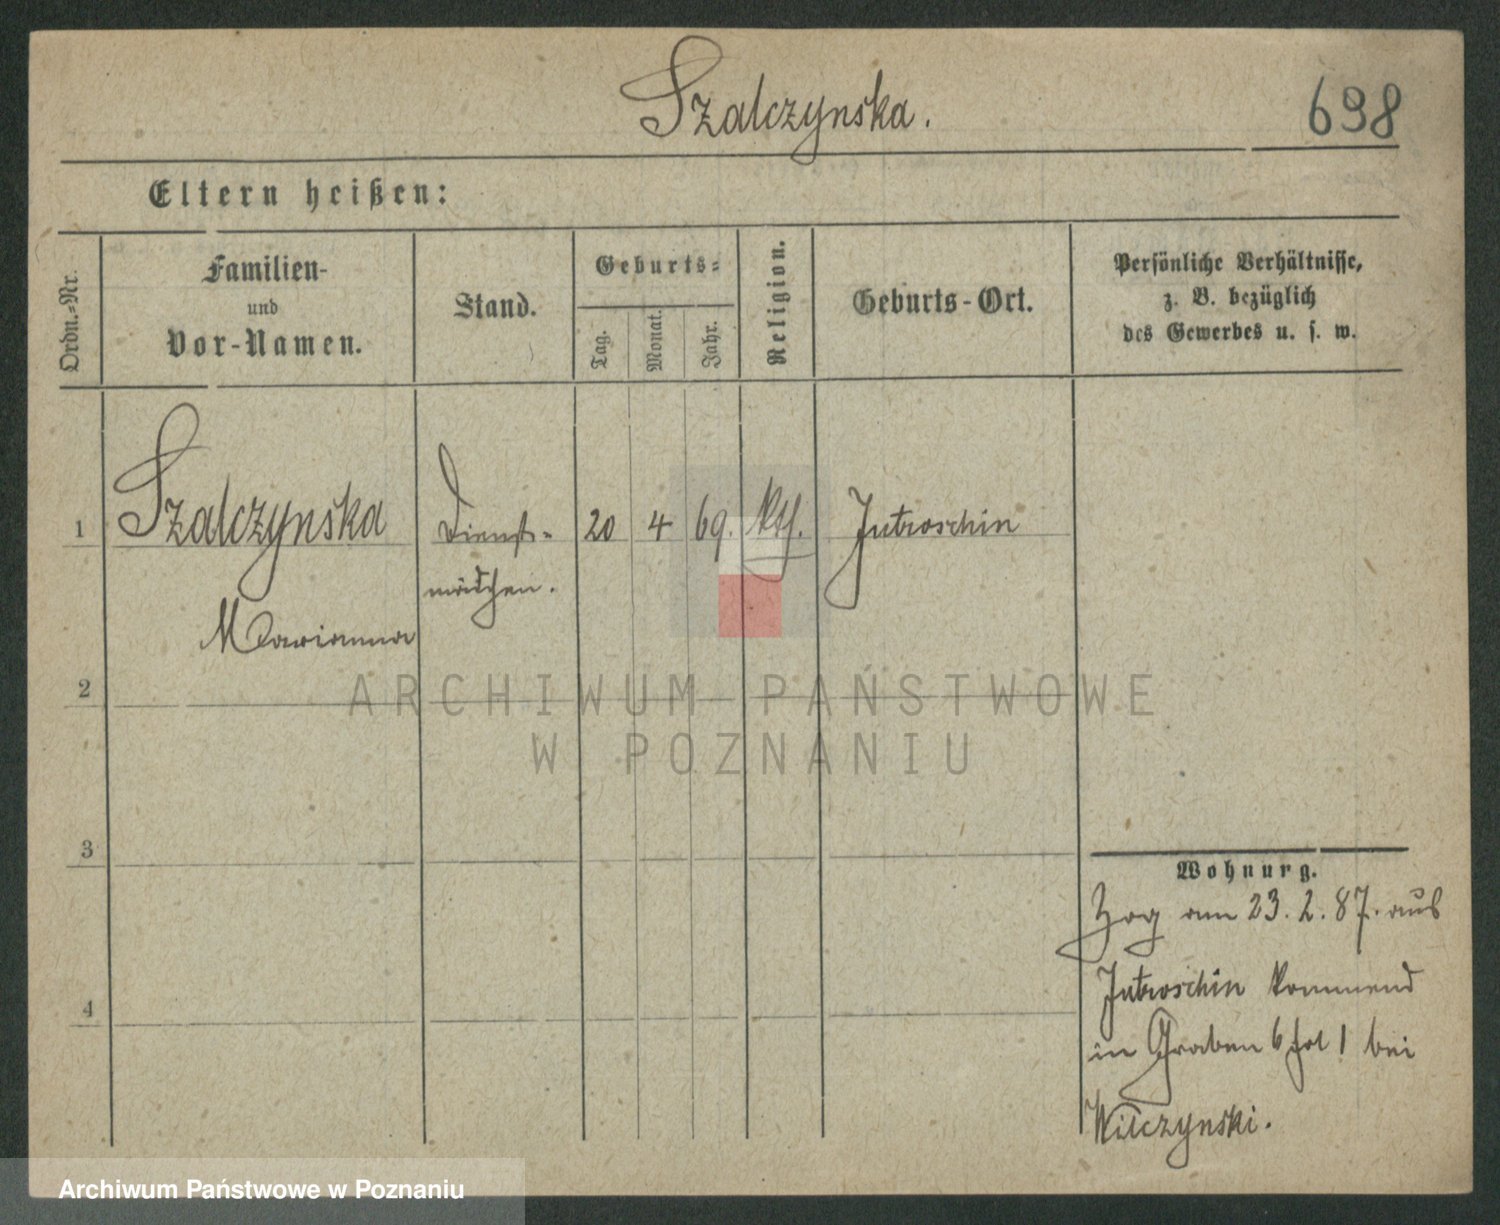 Szalczynska.
698
Eltern heißen:
Ordn.-Nr.
Familien-
und
Vor-Namen.
Stand.
Geburts-
Tag.
Monat.
Jahr.
Religion.
Geburts-Ort.
Persönliche Verhältnisse,
z. B. bezüglich
des Gewerbes u. s. w.
1
Szalczynska
Marianna
Dienst-
mädchen.
20
4
69.
kth.
Jutroschin
2
3
4
Wohnung.
Zog am 23. 2. 87. aus
Jutroschin kommend
in Graben 6 1 bei
Wilczynski.
ARCHIWUM PAŃSTWOWE
W POZNANIU
Archiwum Państwowe w Poznaniu